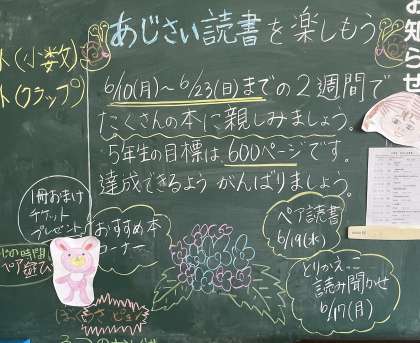 あじさい読書を楽しもう
お知らせ
ト(小数)
ト(クラップ)
6/10(月)～6/23(日)までの2週間で
たくさんの本に親しみましょう。
5年生の目標は、600ページです。
達成できるよう がんばりましょう。
1冊おまけ
チケット
プレゼント
おすすめ本
コーナー
ペア読書
6/19(水)
の時間
ペア遊び
とりかえっこ
読み聞かせ
6/17(月)